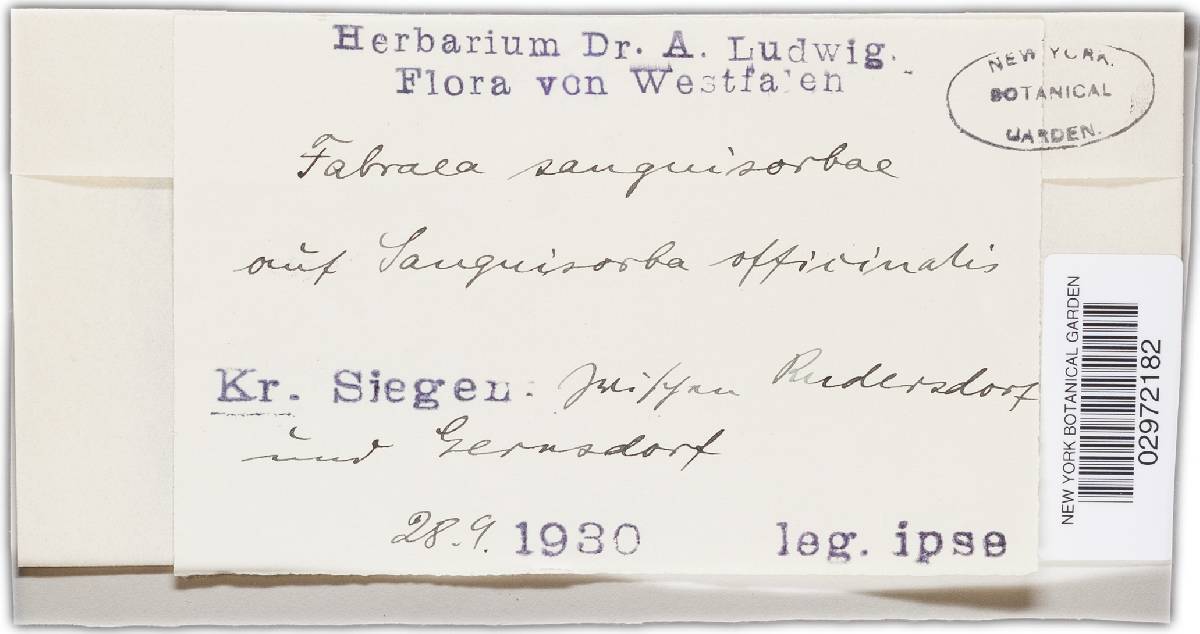 Herbarium Dr. A. Ludwig.
Flora von Westfalen
NEW YORK
BOTANICAL
GARDEN.
Fabraea sanguisorbae
auf Sanguisorba officinalis
Kr. Siegen: zwischen Rudersdorf
und Gernsdorf
28.9. 1930 leg. ipse
NEW YORK BOTANICAL GARDEN
02972182